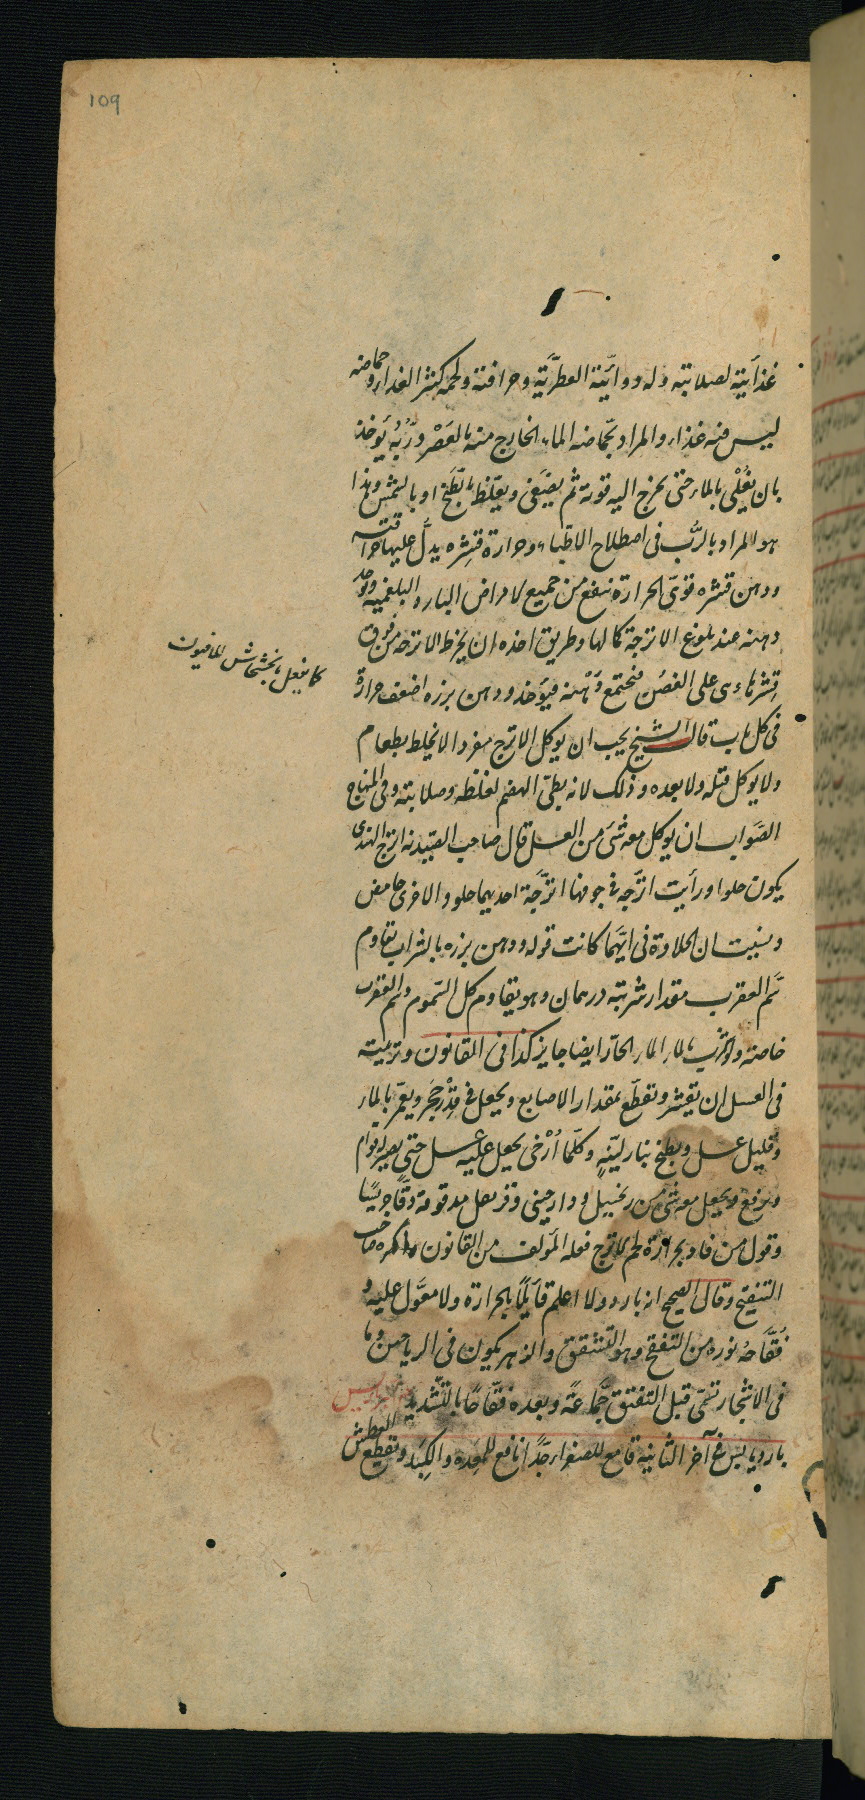 109
غذائية لصلابته وله دوائية العطرية وحرافته ولحمه كثير الغذاء وحماضه
ليس فيه غذاء والمراد بحماضه الماء الخارج منه بالعَصْر ورُبُّه يؤخذ
بان يُغْلى بالماء حتى يخرج اليه قوته ثم يصفى ويغلظ بالطبخ او بالشمس وهذا
هو المراد بالرُّب فى اصطلاح الاطباء وحرارة قشره يدل عليها حرافته
ودهن قشره قوى الحرارة ينفع من جميع الامراض الباردة البلغمية
دهنه عند بلوغ الاترجة كمالها وطريق اخذه ان يخرط الاترجة من فوق
قشرها وهى على الغصن فيجتمع دهنه فيؤخذ ودهن بزره اضعف حرارة
كما يفعل بخشخاش للافيون
فى كل باب قال الشيخ يجب ان يوكل الاترج مفردا لا يخلط بطعام
ولا يوكل قبله ولا بعده وذلك لانه بطئ الهضم لغلظه وصلابته وفى المنهاج
الصواب ان يوكل معه شئ من العسل قال صاحب الصيدنة اترج الهندى
يكون حلوا ورأيت اترجه فى جوفها اترجة احديهما حلو والاخرى حامض
ونسيت ان الحلاوة فى ايتهما كانت قوله ودهن بزره بالشراب يقاوم
سَم العقرب مقدار شربته درهمان وهو يقاوم كل السموم وسم العقرب
خاصة والشرب بالماء الحار ايضا جايز كذا فى القانون وتربيته
فى العسل ان يقشر وتقطع بمقدار الاصابع ويجعل فى قِدْر حَجَر ويغمر بالماء
وقليل عسل ويطبخ بنار لينة وكلما أرْخى يجعل عليه عسل حتى يصير له قوام
ويرفع ويجعل معه شئ من زنجبيل ودارجينى وقرنفل مدقوقة دقا جريشا
وقول من قال بحرارة لحم الاترج نقله المؤلف من القانون وانكره صاحب
التنقيح وقال الصحيح انه بارد ولا اعلم قائلا بالحرارة ولا معول عليه و
فُقّاحهُ نوره من التفقح وهو التشقق والزهر يكون فى الرياحين وما
فى الاشجار تسمى قبل التفتق جماعة وبعده فقاحا بالتشديد
بارد يابس فى آخر الثانية قامع للصفراء جدا نافع للمعدة والكبد ويقطع العطش